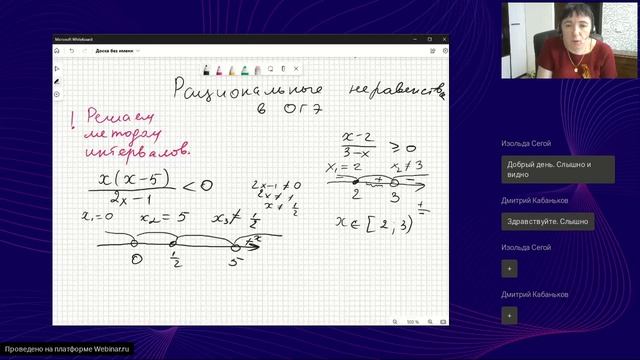 Microsoft Whiteboard
Доска без имени
Рациональные неравенства
в ОГЭ
! Решаем
методом
интервалов.
x(x-5)/(2x-1) < 0
2x-1≠0
2x≠1
x≠1/2
x₁=0 x₂=5 x₃≠1/2
0 1/2 5
(x-2)/(3-x) ≥ 0
x₁=2 x₂≠3
- + -
2 3
x∈[2,3)
100 %
Изольда Сегой
Добрый день. Слышно и
видно
Дмитрий Кабаньков
Здравствуйте. Слышно
Изольда Сегой
+
Дмитрий Кабаньков
+
Проведено на платформе Webinar.ru